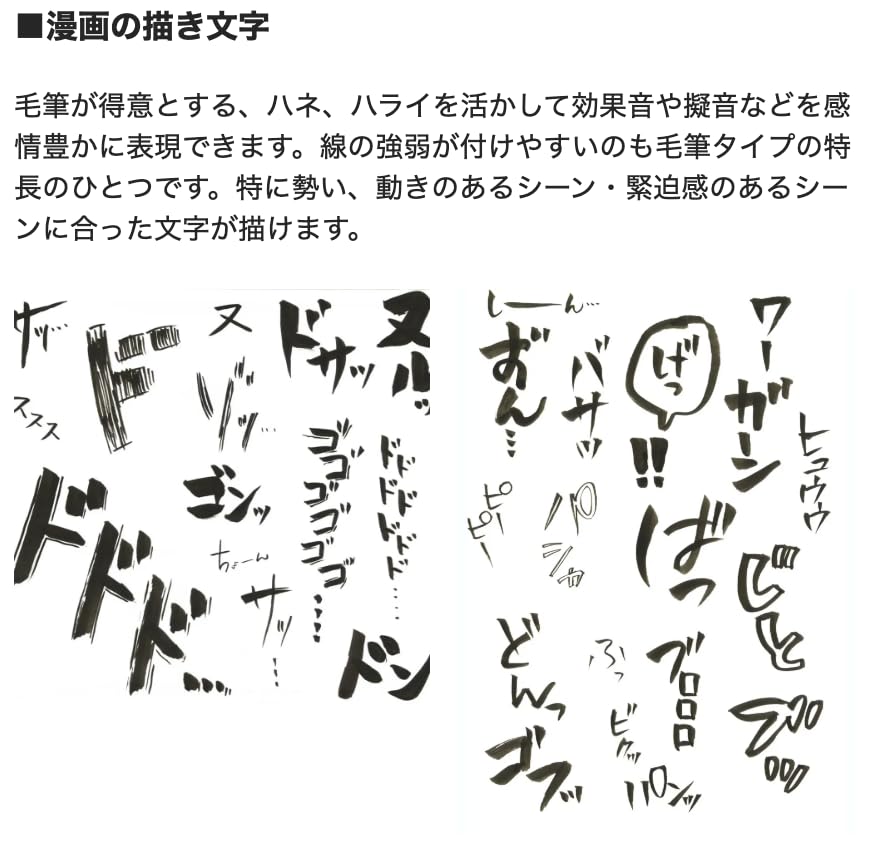 ■漫画の描き文字
毛筆が得意とする、ハネ、ハライを活かして効果音や擬音などを感
情豊かに表現できます。線の強弱が付けやすいのも毛筆タイプの特
長のひとつです。特に勢い、動きのあるシーン・緊迫感のあるシー
ンに合った文字が描けます。
サッ…
ド
ヌ
ドサッ
ヌルッ
ススス
ゾッ…
ゴゴゴゴゴゴ…
ドドドドドドド…
ゴンッ
ドドド…
ちょーん
サッ…
ドン
しーん…
おん…
バサッ
げっ
!!
ワー
ガーン
ヒュウウ
ピピー
パシャ
ばっ
じと
どんっ
ふっ
ブロロロ
ビクッ
ゴフッ
パンッ